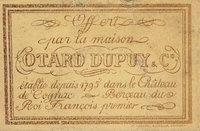 Offert
par la maison
OTARD DUPUY & Cº
établie depuis 1795 dans le Château
de Cognac — Berceau du
Roi François premier